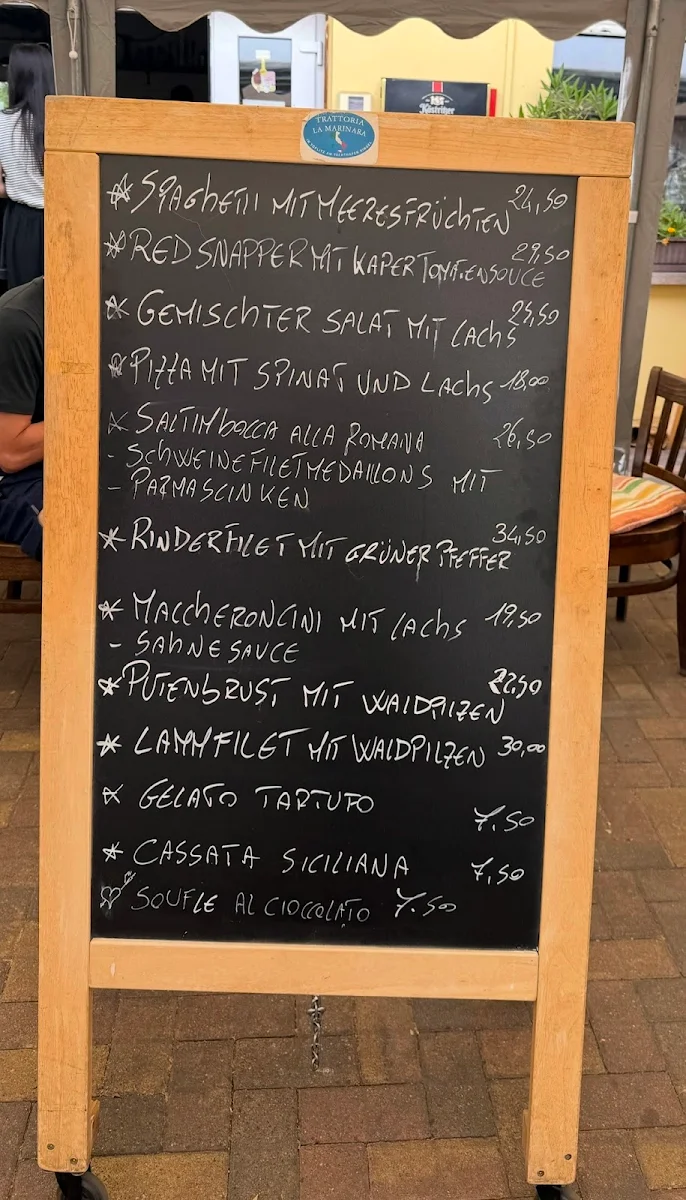 Köstritzer
TRATTORIA
LA MARINARA
SPAGHETTI MIT MEERESFRÜCHTEN 24,50
RED SNAPPER MIT KAPER TOMATENSOUCE 29,50
GEMISCHTER SALAT MIT LACHS 25,50
PIZZA MIT SPINAT UND LACHS 18,00
SALTIMBOCCA ALLA ROMANA 26,50
- SCHWEINEFILETMEDAILLONS MIT
- PARMASCINKEN
RINDERFILET MIT GRÜNER PFEFFER 34,50
MACCHERONCINI MIT LACHS 19,50
- SAHNESAUCE
PUTENBRUST MIT WALDPILZEN 22,50
LAMMFILET MIT WALDPILZEN 30,00
GELATO TARTUFO 7,50
CASSATA SICILIANA 7,50
SOUFLE AL CIOCCOLATO 7.50